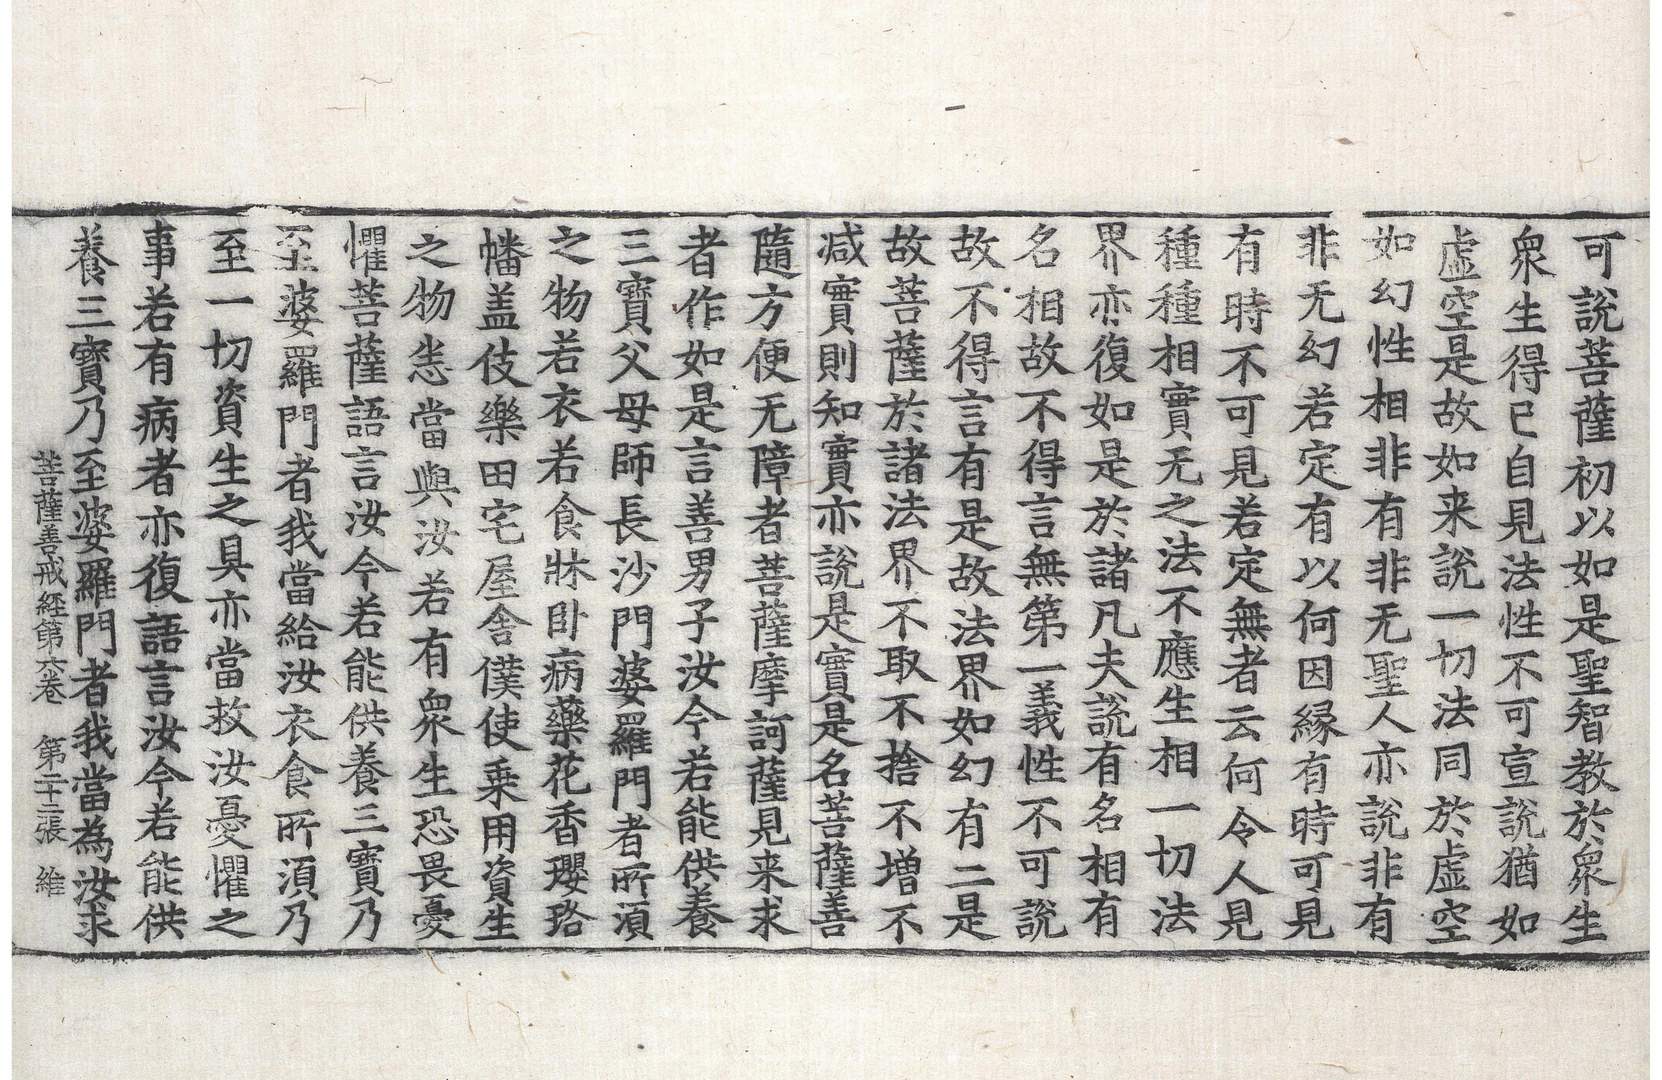 可說菩薩初以如是聖智教於衆生
衆生得已自見法性不可宣說猶如
虛空是故如来說一切法同於虛空
如幻性相非有非无聖人亦說非有
非无幻若定有以何因縁有時可見
有時不可見若定無者云何令人見
種種相實无之法不應生相一切法
界亦復如是於諸凡夫說有名相有
名相故不得言無第一義性不可說
故不得言有是故法界如幻有二是
故菩薩於諸法界不取不捨不增不
减實則知實亦說是實是名菩薩善
隨方便无障者菩薩摩訶薩見来求
者作如是言善男子汝今若能供養
三寶父母師長沙門婆羅門者所湏
之物若衣若食牀卧病藥花香瓔珞
幡盖伎樂田宅屋舍僕使乗用資生
之物恣當與汝若有衆生恐畏憂
懼菩薩語言汝今若能供養三寶乃
至婆羅門者我當給汝衣食所湏乃
至一切資生之具亦當救汝憂懼之
事若有病者亦復語言汝今若能供
養三寶乃至婆羅門者我當為汝求
菩薩善戒経第六卷　第二十二張　維